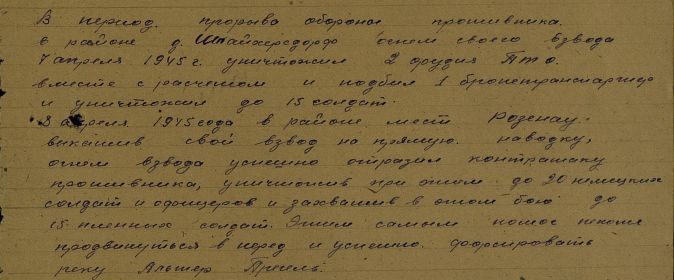 В период прорыва обороны противника.
в районе д. Штайхерсдорф огнем своего взвода
7 апреля 1945 г. уничтожил 2 орудия ПТО.
вместе с расчетом и подбил 1 бронетранспортер
и уничтожил до 15 солдат.
8 апреля 1945 года в районе мест Розенау.
выкатив свой взвод на прямую. наводку,
огнем взвода успешно отразил контратаку
противника, уничтожив при этом до 20 немецких
солдат и офицеров и захватив в этом бою до
15 пленных солдат. Этим самым помог пехоте
продвинуться в перед и успешно. форсировать
реку Альтер Прегель.